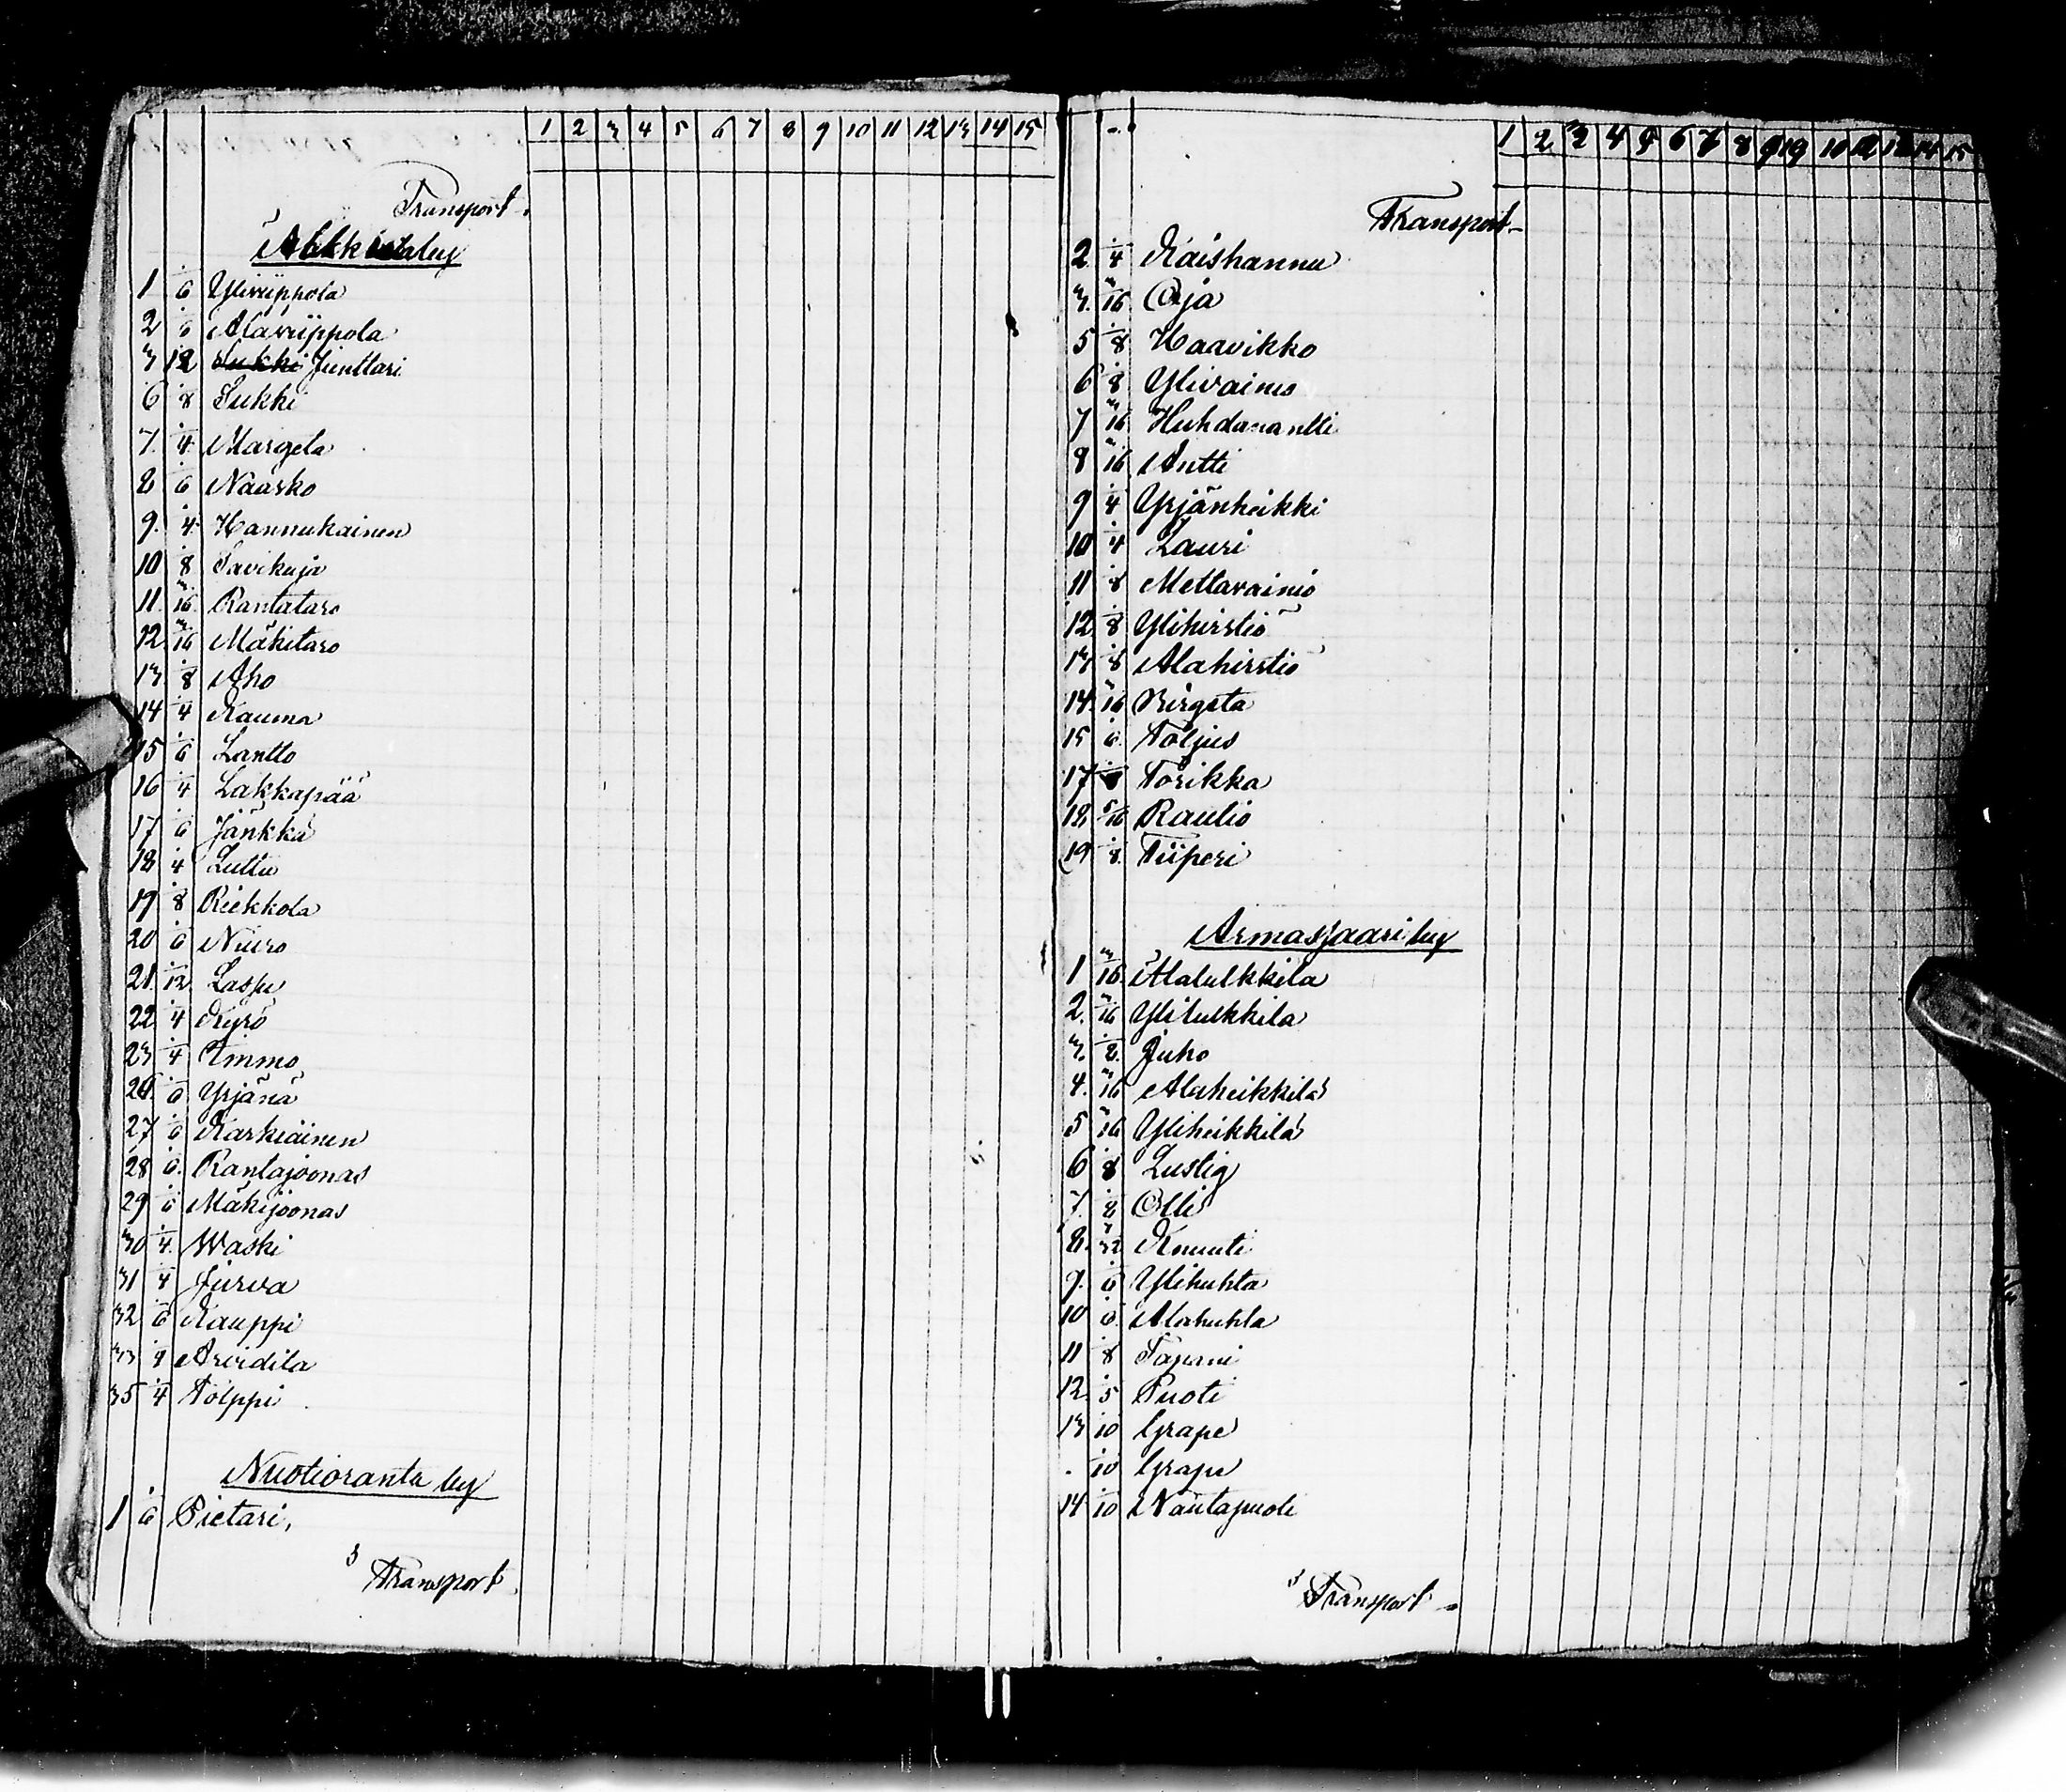 1 2 3 4 5 6 7 8 9 10 11 12 13 14 15
Transport
by
1 6 Yliviippola
2 6 Alaviippola
3 12 Sukki Junttari
6 8 Sukki
7. 4 Margeta
8 6 Naasko
9. 4 Hannukainen
10 8 Savikuja
11. 3/16 Rantataro
12. 3/16 Mäkitaro
13 8 Aho
14 4 Kauma
15 6 Lantto
16 4 Lakkapää
17 6 Jänkkä
18 4 Luttu
19 8 Riekkola
20 6 Niuro
21. 12 Laspu
22 4 Kyrö
23 4 Kimmo
6 Yrjänä
27 6 Karkiainen
28 6. Rantajoonas
29 6 Mäkijoonas
30 4. Waski
31 4 Jurva
32 6 Kauppi
33 4 Arvidila
35 4 Tölppi
Nuotioranta by
1 6 Pietari,
Transport
1 2 3 4 5 6 7 8 9 10 12 13 14 15
Transport
2 4 Kaishannu
3. 3/16 Oja
5 8 Haavikko
6 8 Ylivainio
7 3/16 Huhdanantti
8 3/16 Antti
9 4 Yrjänheikki
10 4 Lauri
11 8 Mettavainio
12. 8 Ylihirstiö
13 8 Alahirstiö
14. 3/16 Pirgeta
15 6. Töljus
17 Törikka
18. 5/16 Raulio
19 8. Tiiperi
Armassaari by
1 3/16. Alatulkkila
2. 3/16 Ylitulkkila
3. 8. Juho
4. 3/16 Alaheikkilä
5 3/16 Yliheikkilä
6 8 Lustig
7. 8 Olli
8. 3/32 Knuuti
9. 6 Ylihuhta
10 6. Alahuhta
11 8 Tapani
12. 5 Puoti
13 10 Grape
10 Grape
14 10 Rantapuoti
Transport